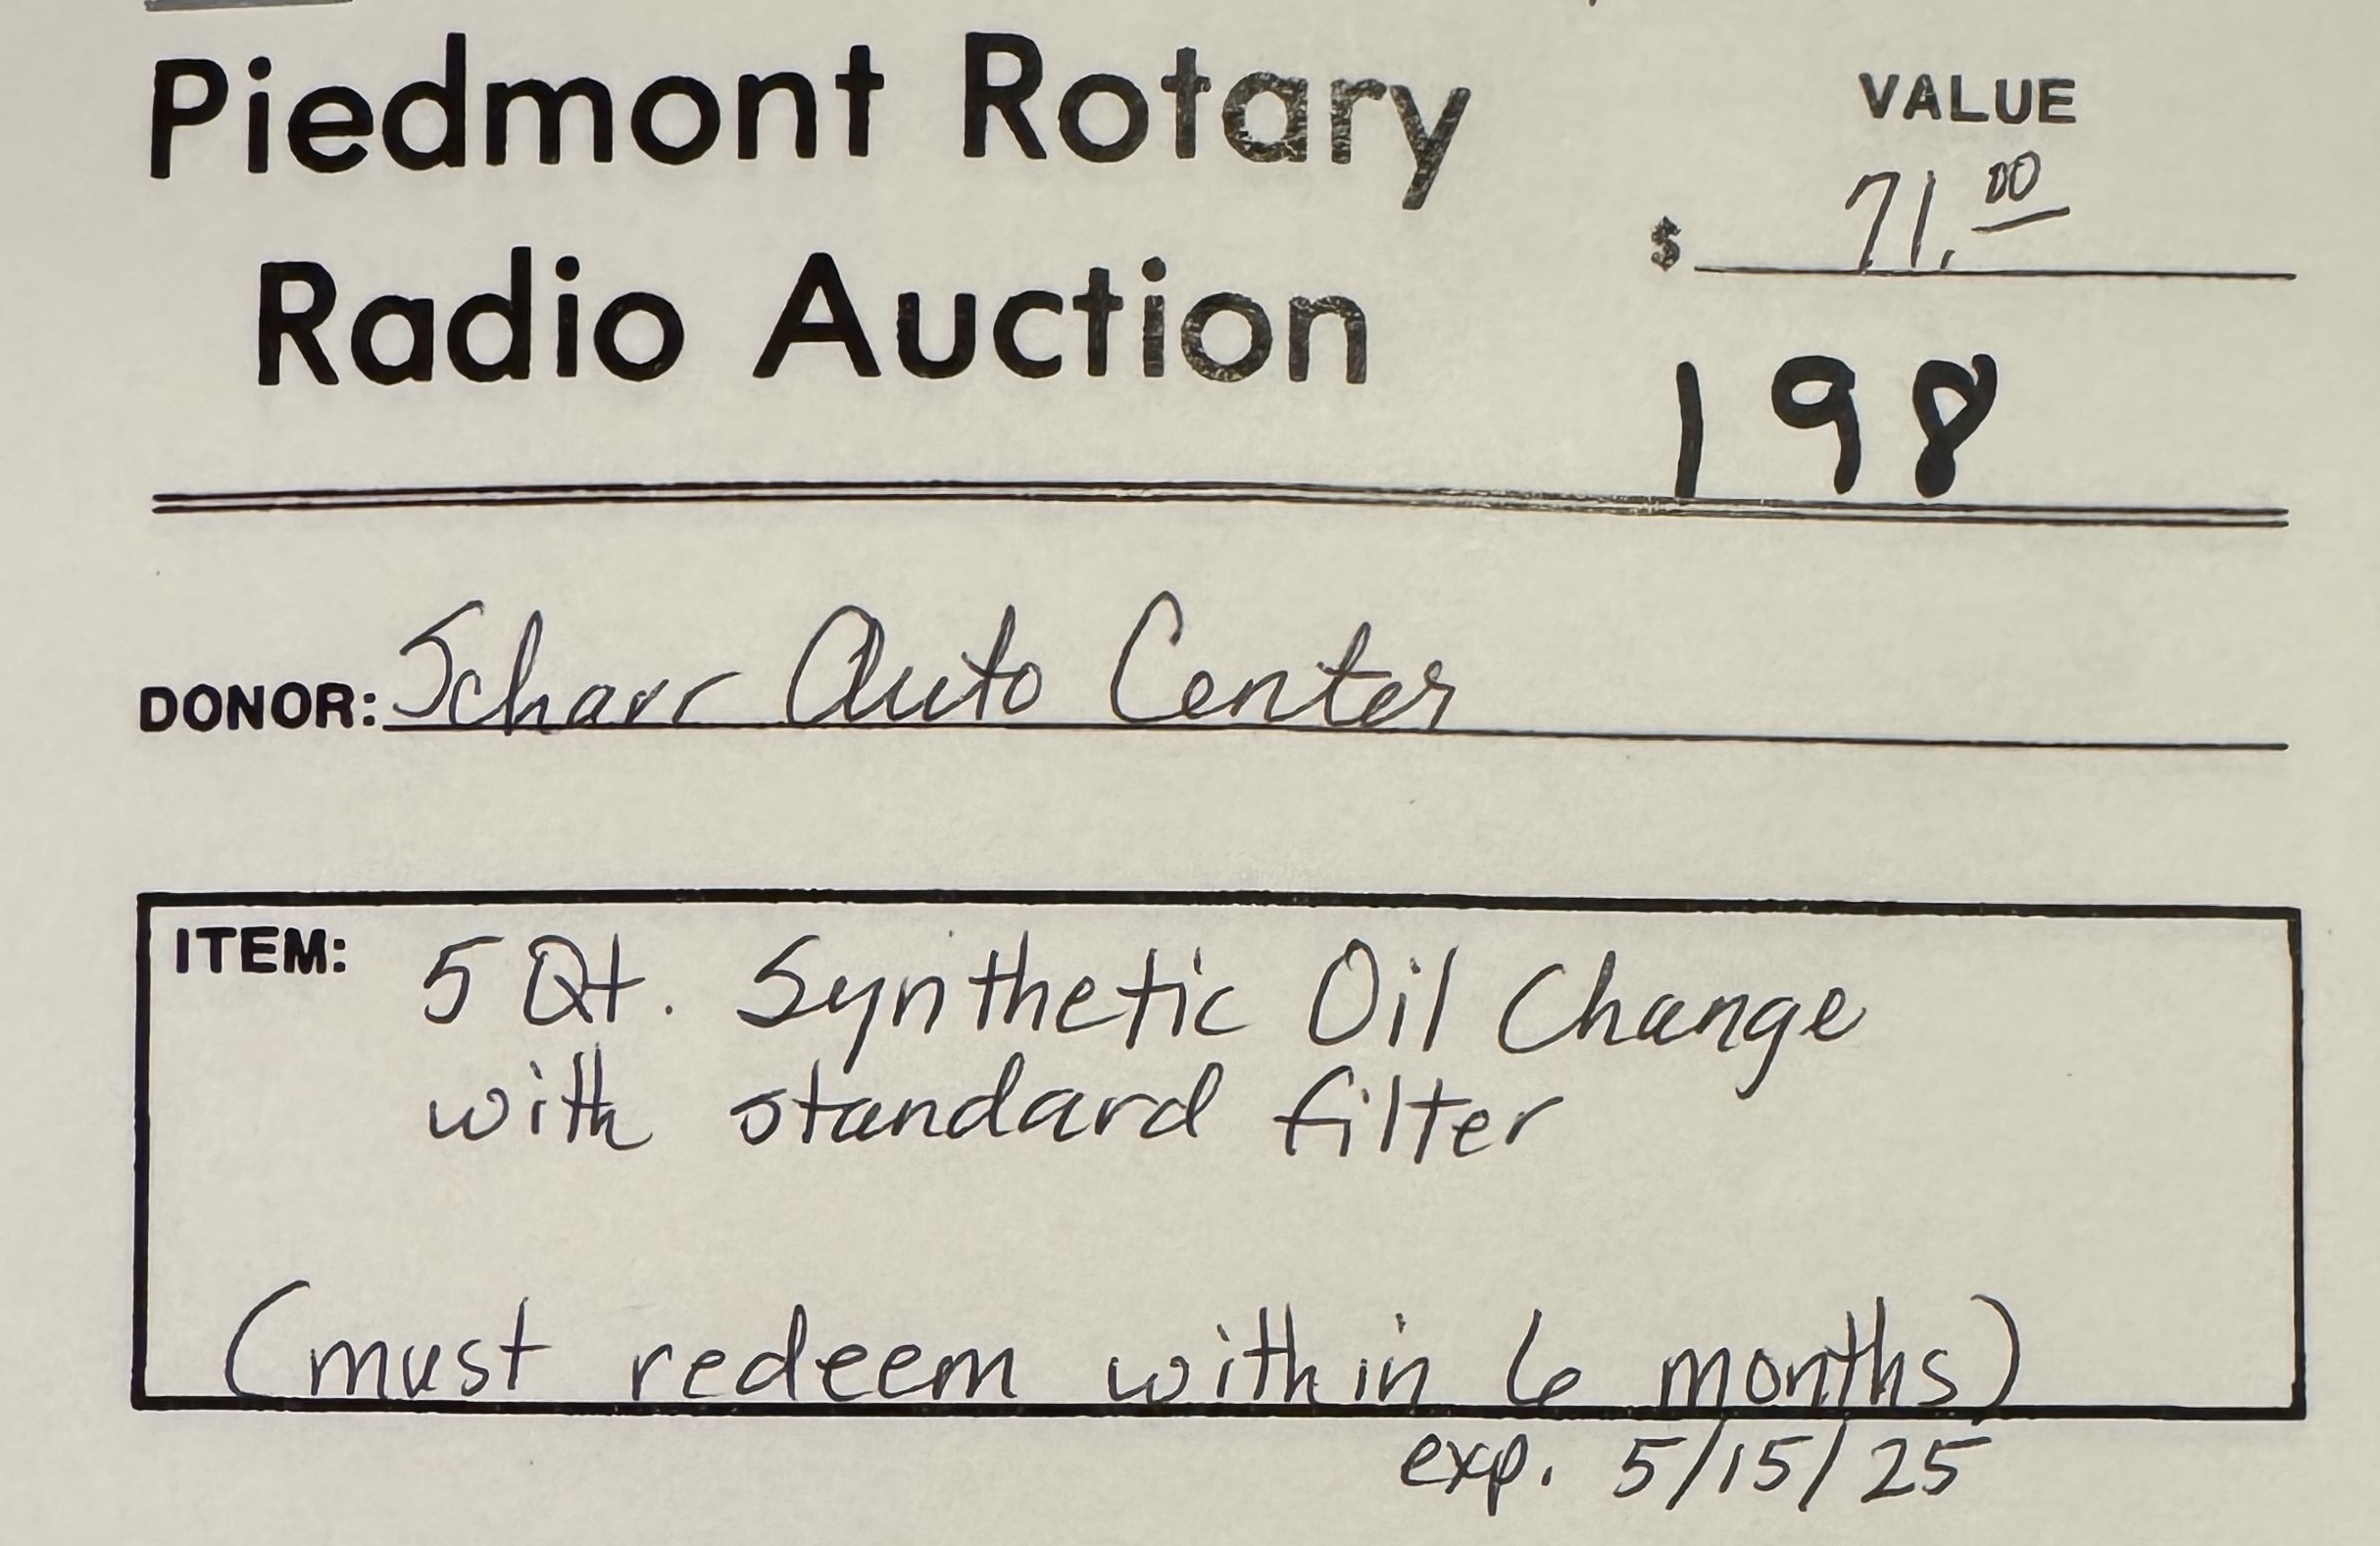 Piedmont Rotary
Radio Auction
VALUE
$ 71.00
198
DONOR: Scharr Auto Center
ITEM: 5 Qt. Synthetic Oil Change
with standard filter
(must redeem within 6 months)
exp. 5/15/25